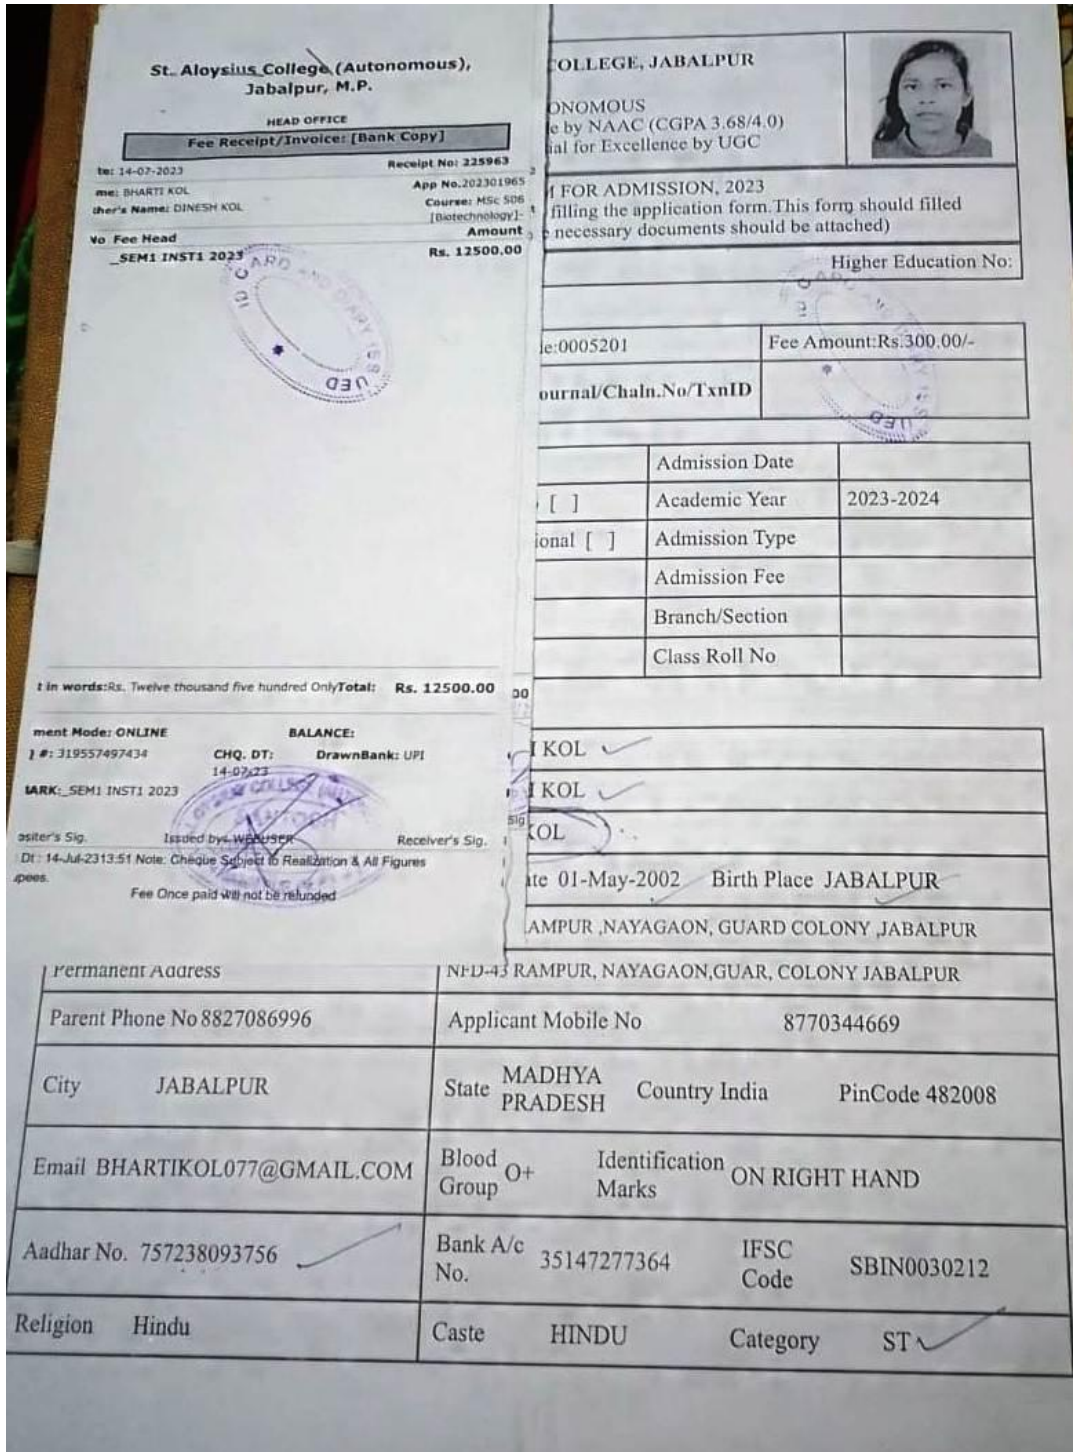 St. Aloysius College (Autonomous),
Jabalpur, M.P.
HEAD OFFICE
Fee Receipt/Invoice: [Bank Copy]
te: 14-07-2023 Receipt No: 225963
me: BHARTI KOL App No.202301965
ther's Name: DINESH KOL Course: MSc 506
[Biotechnology]-
No Fee Head Amount
_SEM1 INST1 2023 Rs. 12500.00
ID CARD AND DIARY ISSUED
t in words:Rs. Twelve thousand five hundred OnlyTotal: Rs. 12500.00
ment Mode: ONLINE BALANCE:
#: 319557497434 CHQ. DT: DrawnBank: UPI
14-07-23
IARK:_SEM1 INST1 2023
ositer's Sig. Issued by: WEBUSER Receiver's Sig.
Dt: 14-Jul-2313:51 Note: Cheque Subject to Realization & All Figures
upees.
Fee Once paid will not be refunded
00
Sig
COLLEGE, JABALPUR
ONOMOUS
e by NAAC (CGPA 3.68/4.0)
ial for Excellence by UGC
M FOR ADMISSION, 2023
filling the application form.This form should filled
necessary documents should be attached)
Higher Education No:
ID CARD AND DIARY ISSUED
le:0005201 Fee Amount:Rs.300.00/-
ournal/Chaln.No/TxnID
Admission Date
[ ] Academic Year 2023-2024
ional [ ] Admission Type
Admission Fee
Branch/Section
Class Roll No
I KOL
I KOL
KOL
ate 01-May-2002 Birth Place JABALPUR
AMPUR ,NAYAGAON, GUARD COLONY ,JABALPUR
Permanent Address NFD-43 RAMPUR, NAYAGAON,GUAR, COLONY JABALPUR
Parent Phone No 8827086996 Applicant Mobile No 8770344669
City JABALPUR State MADHYA PRADESH Country India PinCode 482008
Email BHARTIKOL077@GMAIL.COM Blood Group O+ Identification Marks ON RIGHT HAND
Aadhar No. 757238093756 Bank A/c No. 35147277364 IFSC Code SBIN0030212
Religion Hindu Caste HINDU Category ST